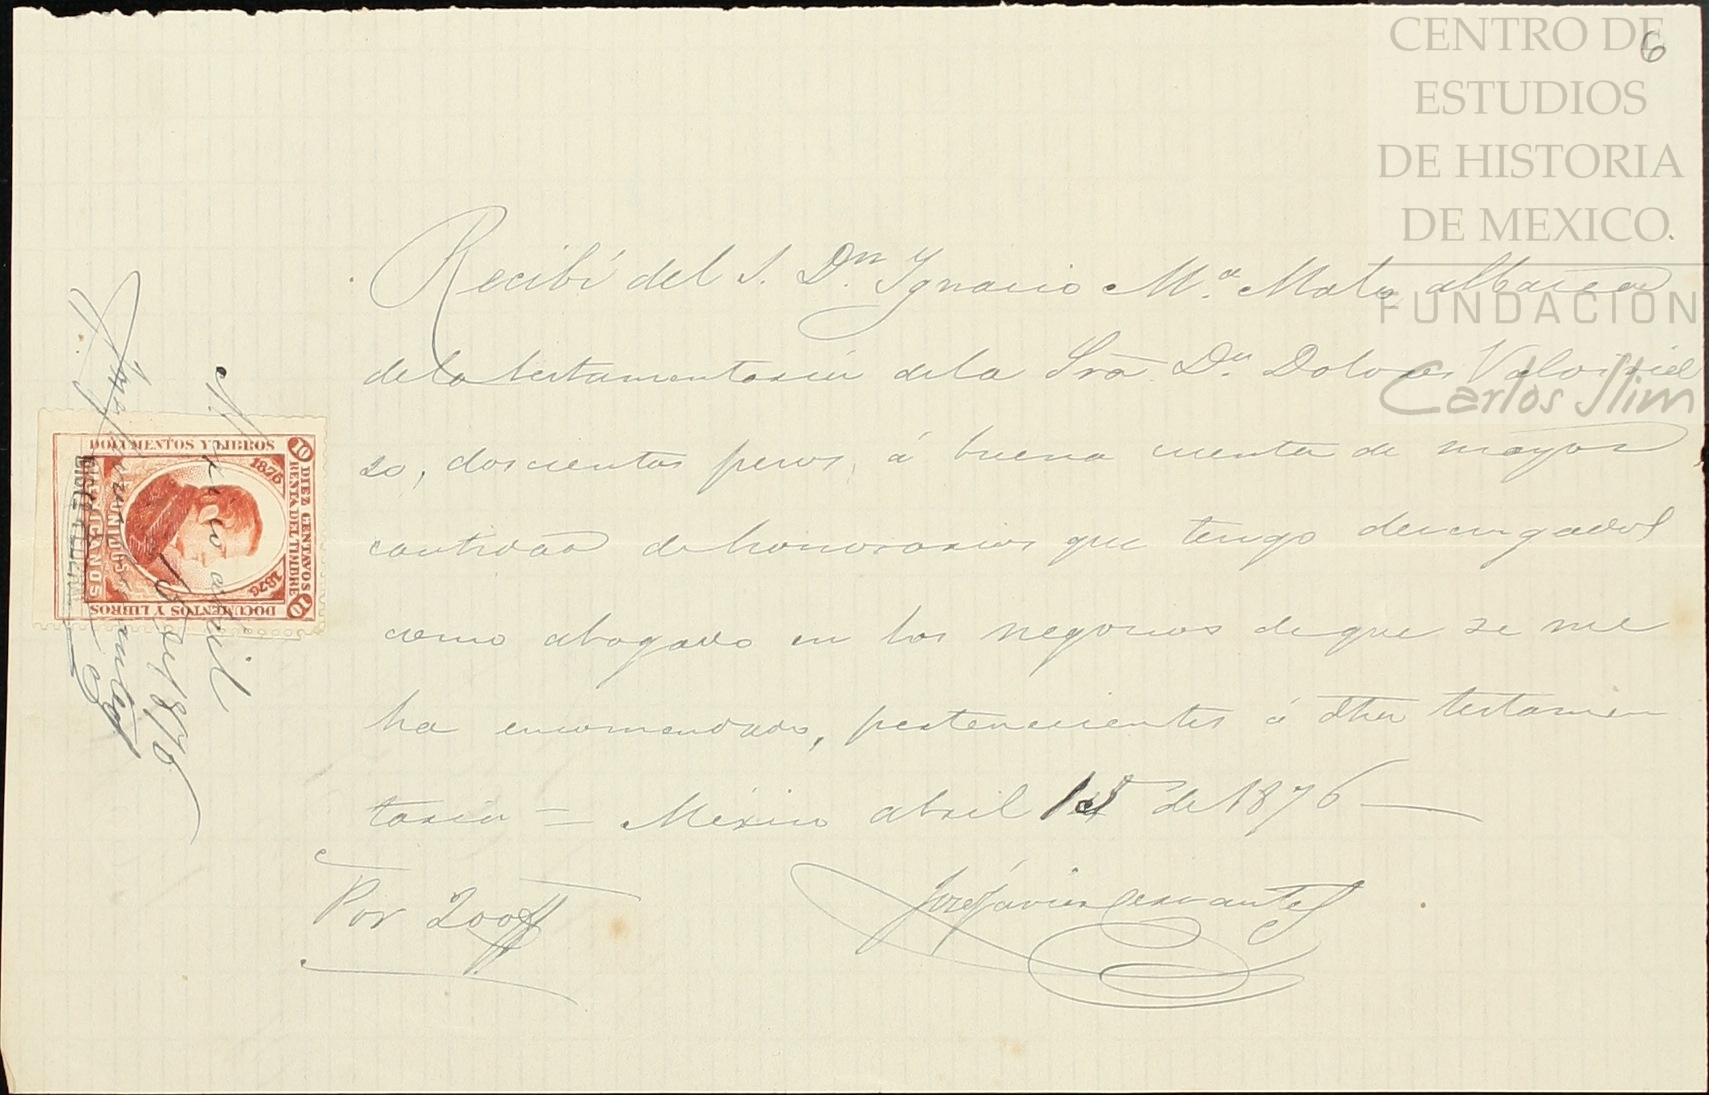 CENTRO DE
ESTUDIOS
DE HISTORIA
DE MEXICO.
FUNDACIÓN
Carlos Slim
6
Recibí del S. Dn. Ygnacio Ma. Mata albacea
de la testamentaria de la Sra. Da. Dolores
so, doscientos pesos, á buena cuenta de mayor
cantidad de honorarios que tengo devengados
como abogado en los negocios de que se me
ha encomendado, pertenecientes á dha testamen
taria = México abril 15 de 1876
Por 200
José Javier Cervantes
México abril
de 1876
DOCUMENTOS Y LIBROS
10
DIEZ CENTAVOS
RENTA DEL TIMBRE
10
1875
1876
DOCUMENTOS Y LIBROS